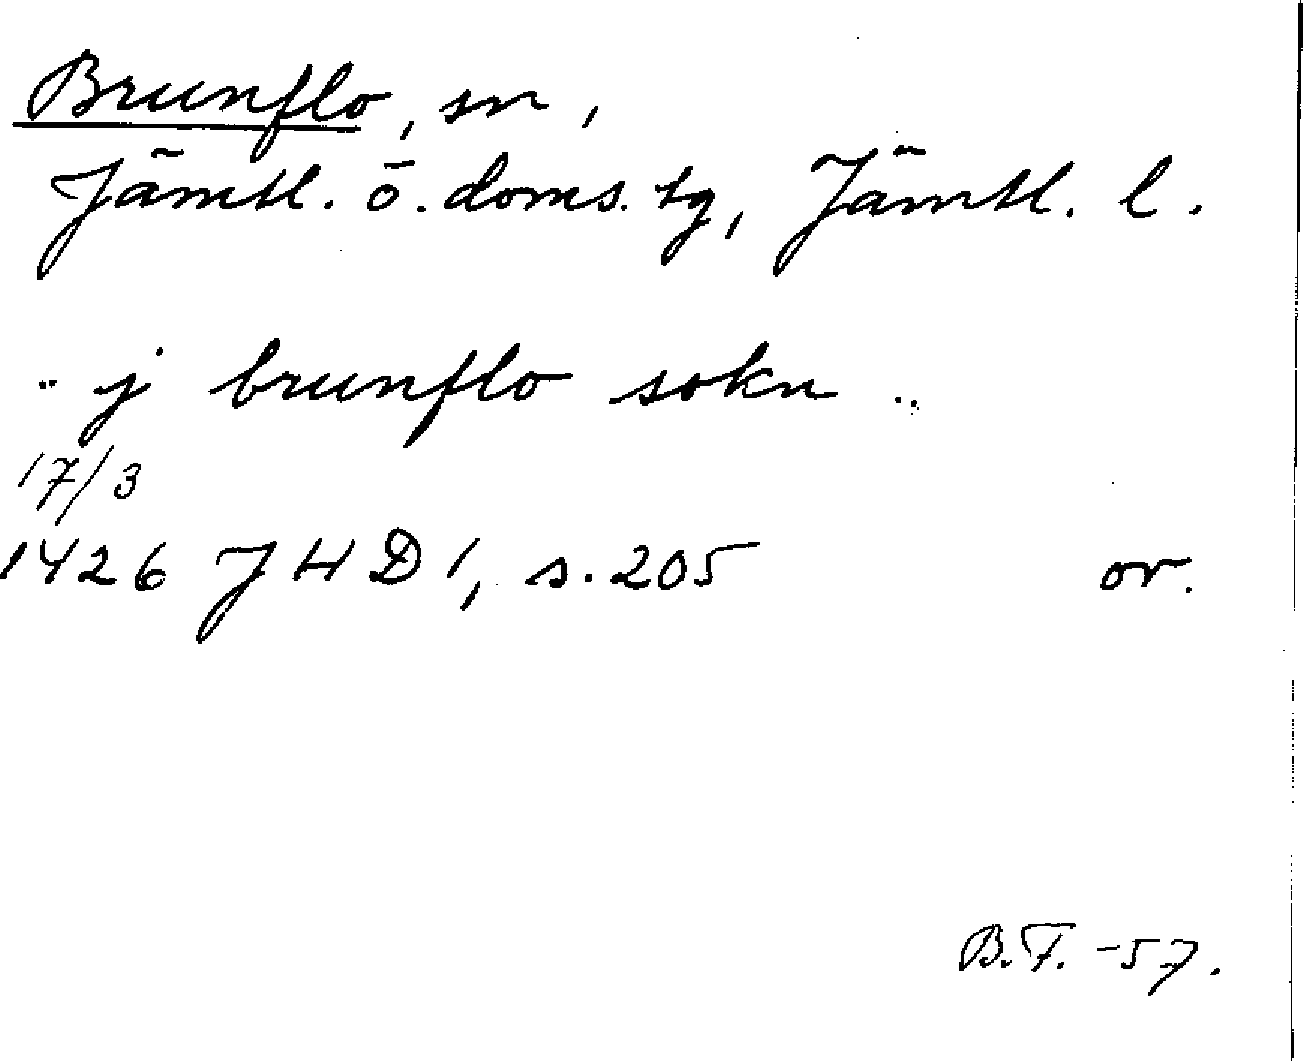 Brunflo, sn,
Jämtl. ö. doms. tg, Jämtl. l.
.. j brunflo sokn ..
17/3
1426 JHD 1, s. 205 or.
B.F. -57.